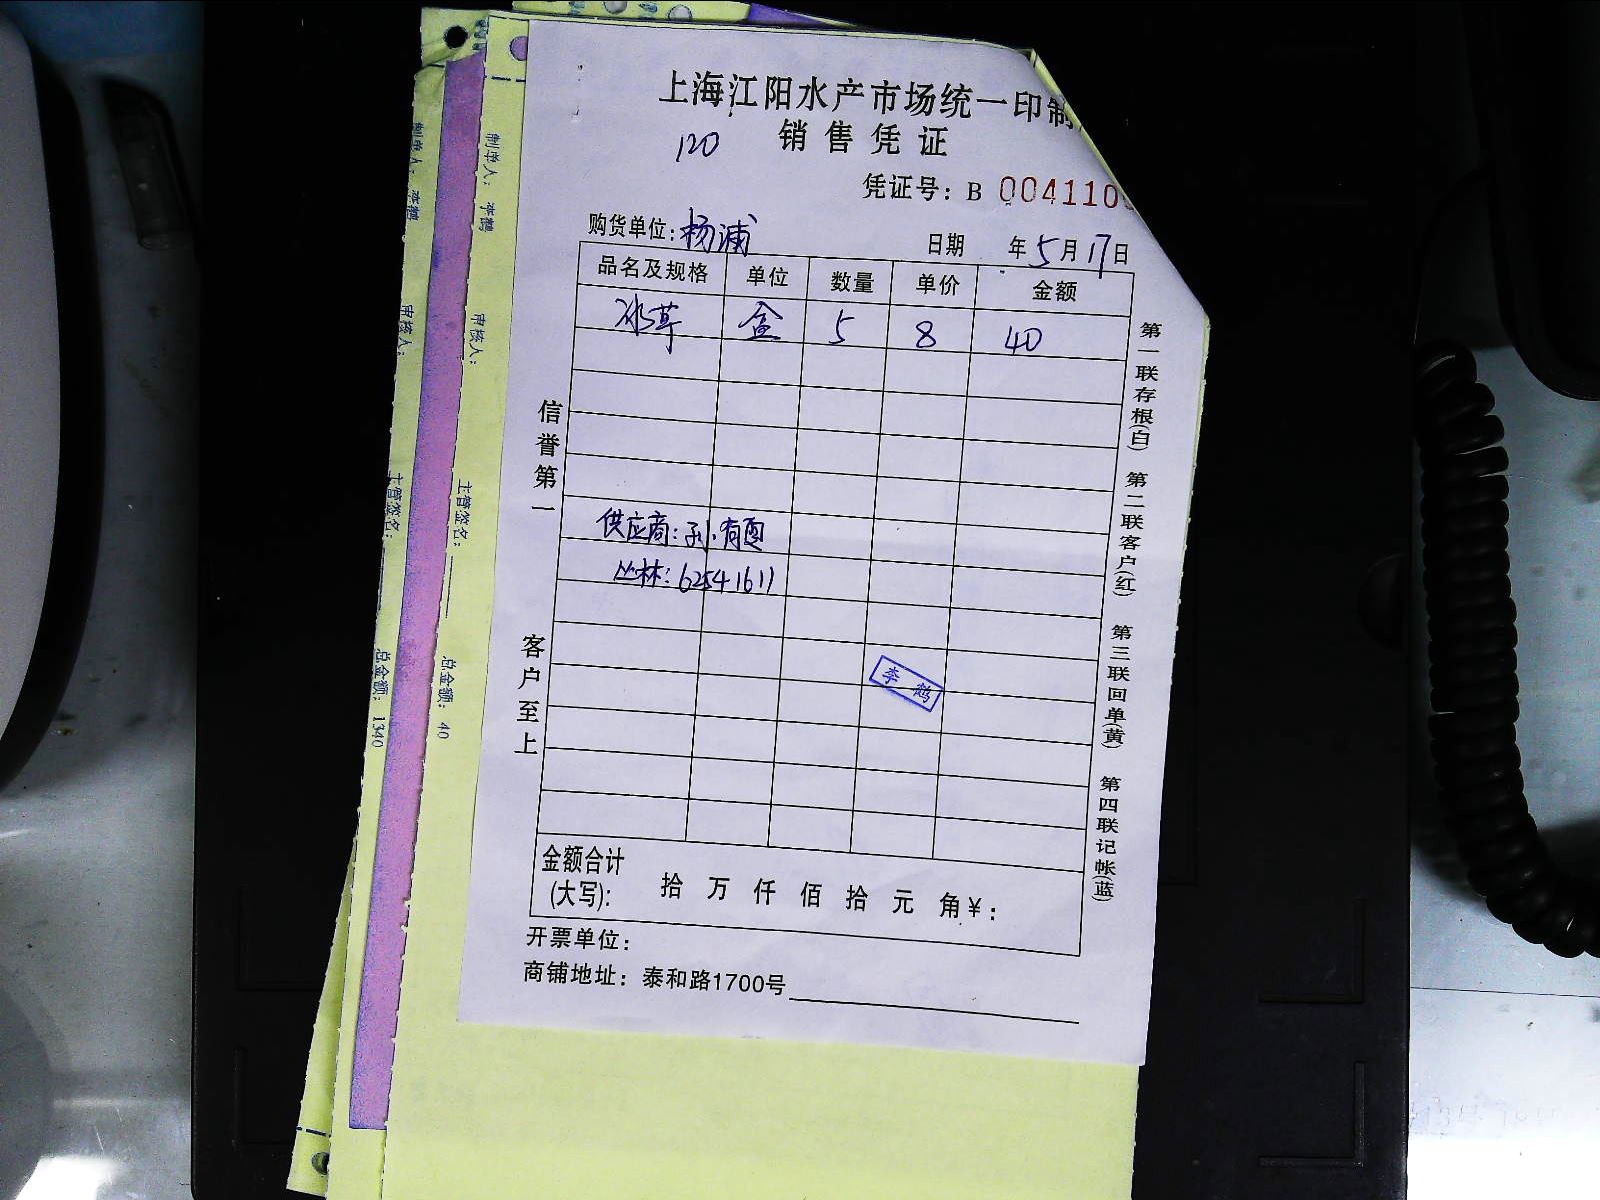 上海江阳水产市场统一印制
120 销售凭证
凭证号：B 004110
购货单位：杨浦 日期 年5月17日
品名及规格 单位 数量 单价 金额
冰草 盒 5 8 40
供应商：孙有
丛林：62541611
李鹤
金额合计
(大写)： 拾 万 仟 佰 拾 元 角￥：
开票单位：
商铺地址：泰和路1700号
信誉第一
客户至上
第一联存根(白) 第二联客户(红) 第三联回单(黄) 第四联记帐(蓝)
制单人：李鹤 审核人： 主管签名： 总金额：40
制单人：李鹤 审核人： 主管签名： 总金额：1340